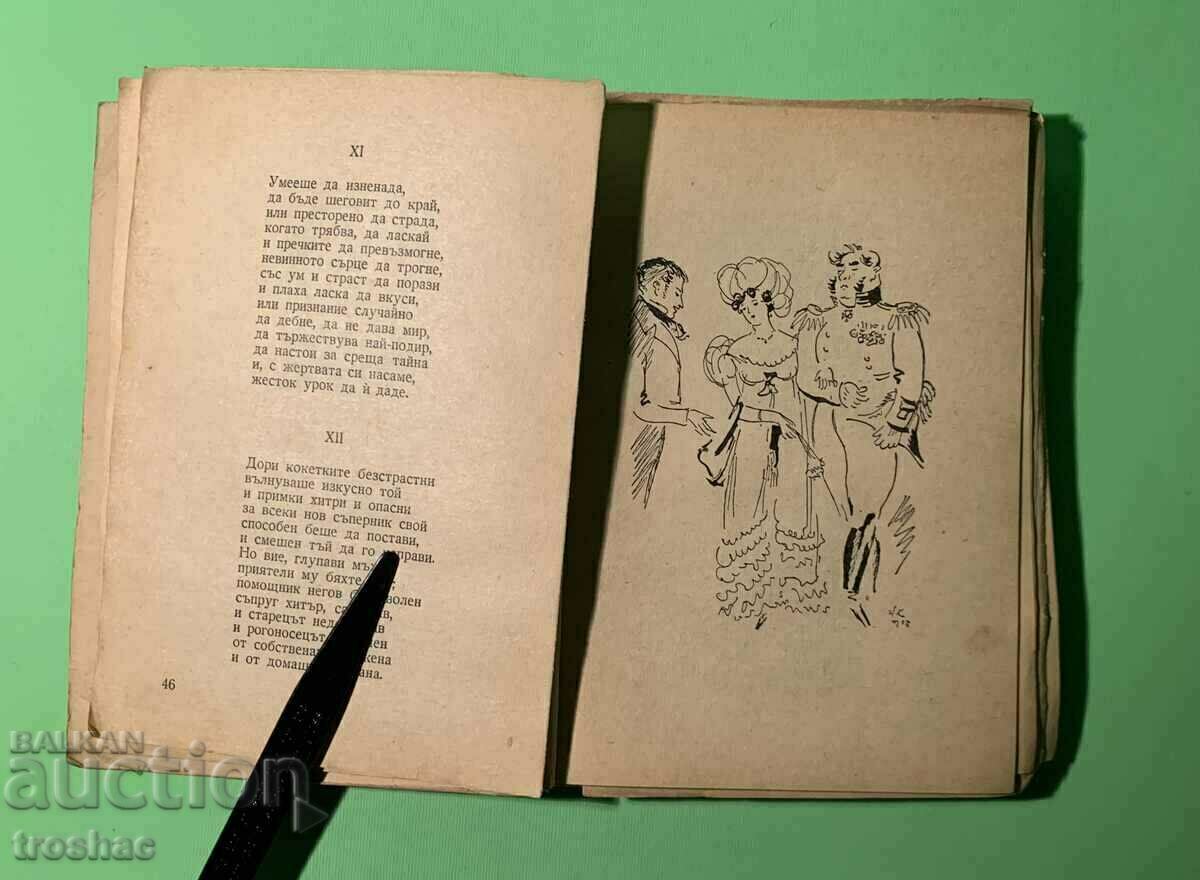 XI
Умееше да изненада,
да бъде шеговит до край,
или престорено да страда,
когато трябва, да ласкай
и пречките да превъзмогне,
невинното сърце да трогне,
със ум и страст да порази
и плаха ласка да вкуси,
или признание случайно
да дебне, да не дава мир,
да тържествува най-подир,
да настои за среща тайна
и, с жертвата си насаме,
жесток урок да ѝ даде.
XII
Дори кокетките безстрастни
вълнуваше изкусно той
и примки хитри и опасни
за всеки нов съперник свой
способен беше да постави,
и смешен тъй да го
Но вие, глупави
приятели му бяхте
помощник негов
съпруг хитър,
и старецът
и рогоносецът
от
и от
46
BALKAN
auction
troshac